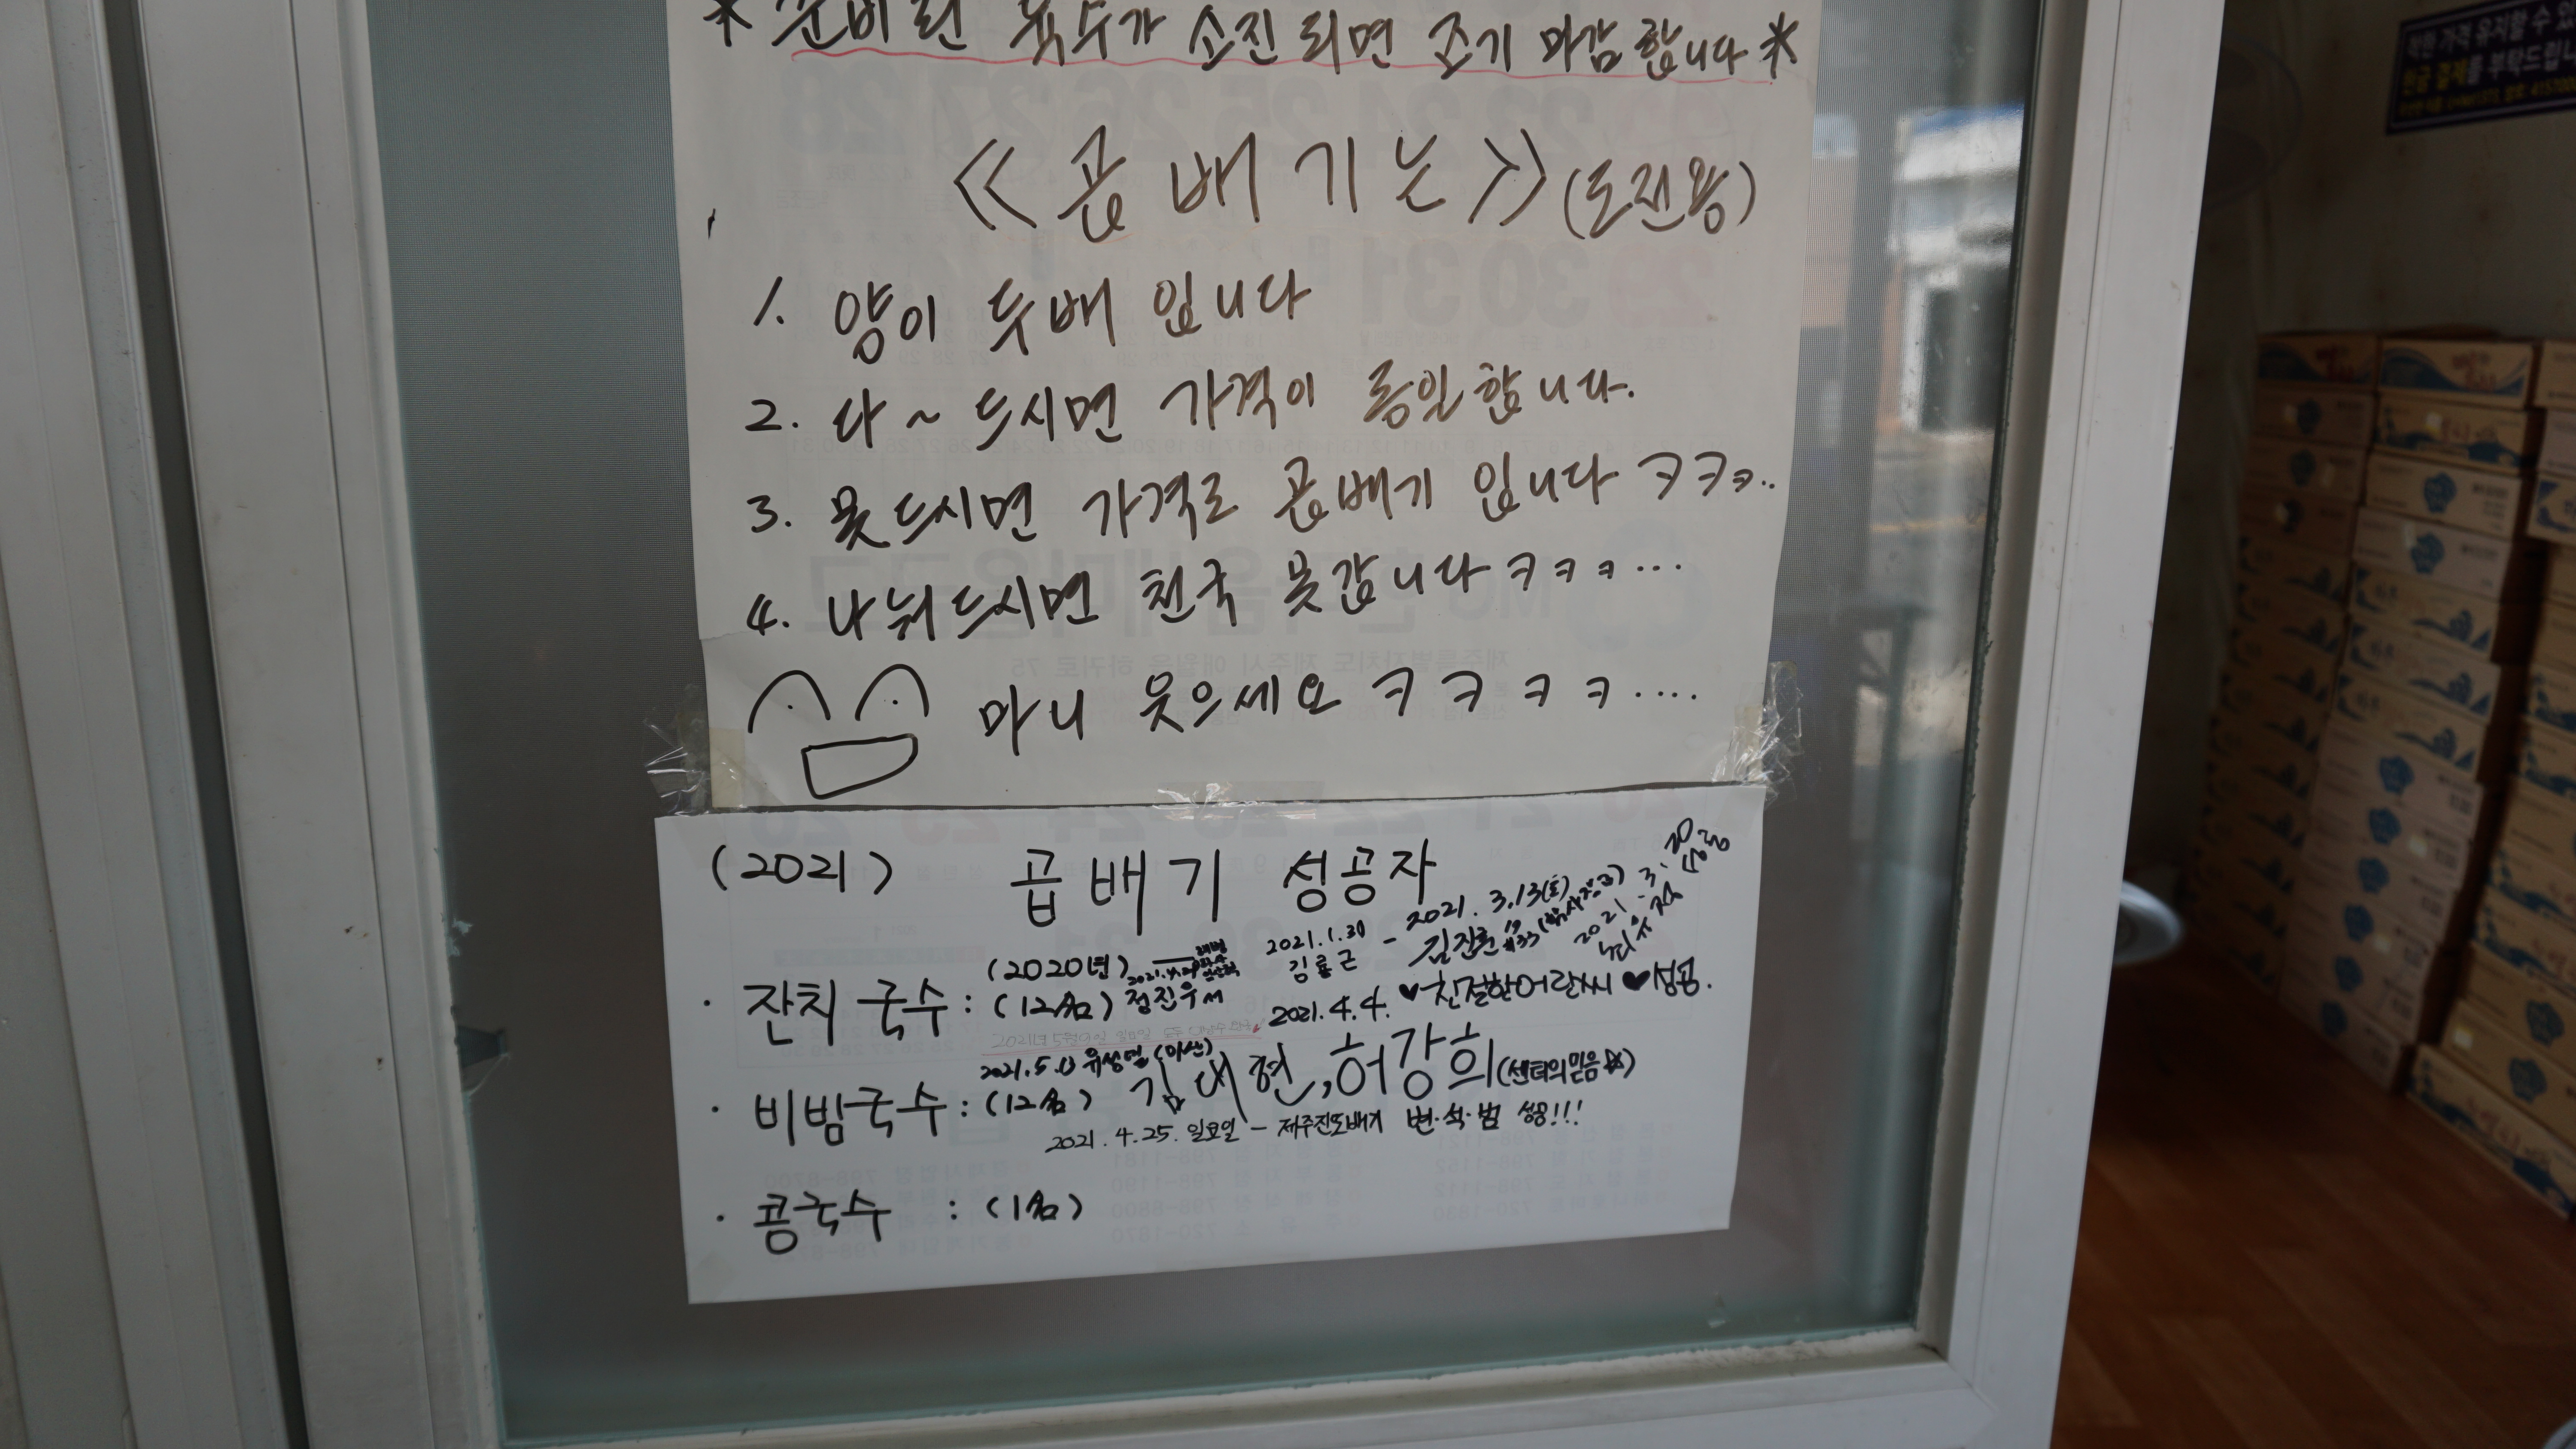 * 준비된 육수가 소진되면 조기 마감합니다 *
<<곱배기는>> (도전용)
1. 양이 두배 입니다
2. 다~ 드시면 가격이 동일합니다.
3. 못드시면 가격도 곱배기 입니다 ㅋㅋㅋ..
4. 나눠드시면 천국 못갑니다 ㅋㅋㅋ...
마니 웃으세요 ㅋㅋㅋㅋ....
(2021) 곱배기 성공자
2021.3.20
2021.3.13(토)
김진훈
2021.1.30
(2020년)
· 잔치국수 : (12名) 정진우
2021.4.4. ♥친절한어란씨♥성공.
2021.5.
(마산)
· 비빔국수 : (12名)
허강희(센터의믿음☆)
2021.4.25. 일요일 - 제주진도배기 변·석·범 성공!!!
· 콩국수 : (1名)
착한 가격 유지할 수 있
현금 결제를 부탁드립니다